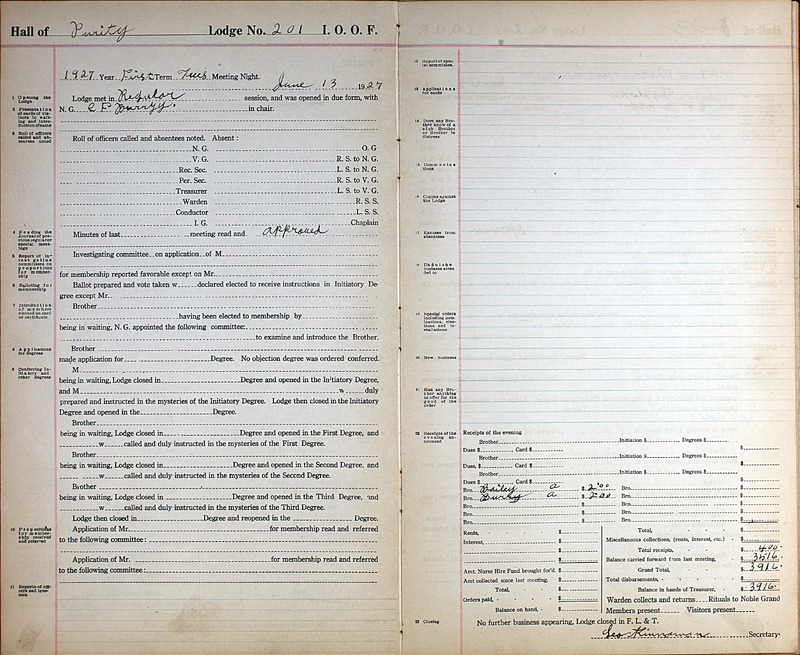 Hall of Purity Lodge No. 201 I. O. O. F.
1927 Year First Term Tues Meeting Night.
June 13 1927
1 Opening the Lodge
Lodge met in Regular session, and was opened in due form, with
N. G. in chair.
3 Roll of officers called and absentees noted
Roll of officers called and absentees noted. Absent:
N. G. O. G
V. G. R. S. to N. G.
Rec. Sec. L. S. to N. G.
Per. Sec. R. S. to V. G.
Treasurer L. S. to V. G.
Warden R. S. S.
Conductor L. S. S.
I. G. Chaplain
4 Reading the Journal of previous regular or special meetings
Minutes of last meeting read and approved
5 Report of investigating committees on propositions for membership
Investigating committee on application of M
for membership reported favorable except on Mr.
6 Balloting for membership
Ballot prepared and vote taken w declared elected to receive instructions in Initiatory De-
gree except Mr.
7 Introduction of members elected on card or certificate
Brother
having been elected to membership by
being in waiting, N. G. appointed the following committee:
to examine and introduce the Brother.
8 Applications for degrees
Brother
made application for Degree. No objection degree was ordered conferred.
9 Conferring Initiatory and other degrees
M
being in waiting, Lodge closed in Degree and opened in the Initiatory Degree,
and M w duly
prepared and instructed in the mysteries of the Initiatory Degree. Lodge then closed in the Initiatory
Degree and opened in the Degree.
Brother
being in waiting, Lodge closed in Degree and opened in the First Degree, and
w called and duly instructed in the mysteries of the First Degree.
Brother
being in waiting, Lodge closed in Degree and opened in the Second Degree, and
w called and duly instructed in the mysteries of the Second Degree.
Brother
being in waiting, Lodge closed in Degree and opened in the Third Degree, and
w called and duly instructed in the mysteries of the Third Degree.
Lodge then closed in Degree and reopened in the Degree.
10 Propositions for membership received and referred
Application of Mr. for membership read and referred
to the following committee:
Application of Mr. for membership read and referred
to the following committee:
11 Reports of officers and trustees
12 Report of special committees.
13 Applications for cards
14 Does any Brother know of a sick Brother or Brother in distress
15 Communications
16 Claims against the Lodge
17 Excuses from absentees
18 Unfinished business attended to
19 Special orders including nominations, elections and installations
20 New business
21 Has any Brother anything to offer for the good of the order
22 Receipts of the evening announced
Receipts of the evening
Brother Initiation $ Degrees $
Dues $ Card $ $
Brother Initiation $ Degrees $
Dues $ Card $ $
Brother Initiation $ Degrees $
Dues $ Card $ $
Bro. Bailey a $ 2.00 Bro. $
Bro. Durry a $ 2.00 Bro. $
Bro. $ Bro. $
Bro. $ Bro. $
Bro. $ Bro. $
Rents, $ Total, $
Interest, $ Miscellaneous collections, (rents, interest, etc.) $
$ Total receipts, $ 4.00
$ Balance carried forward from last meeting, $ 3516
Amt. Nurse Hire Fund brought for'd. $ Grand Total, $ 3916
Amt collected since last meeting, $ Total disbursements, $
Total, $ Balance in hands of Treasurer, $ 3916
Orders paid, $ Warden collects and returns Rituals to Noble Grand
Balance on hand, $ Members present Visitors present
23 Closing
No further business appearing, Lodge closed in F. L. & T.
Geo Kinnaman Secretary